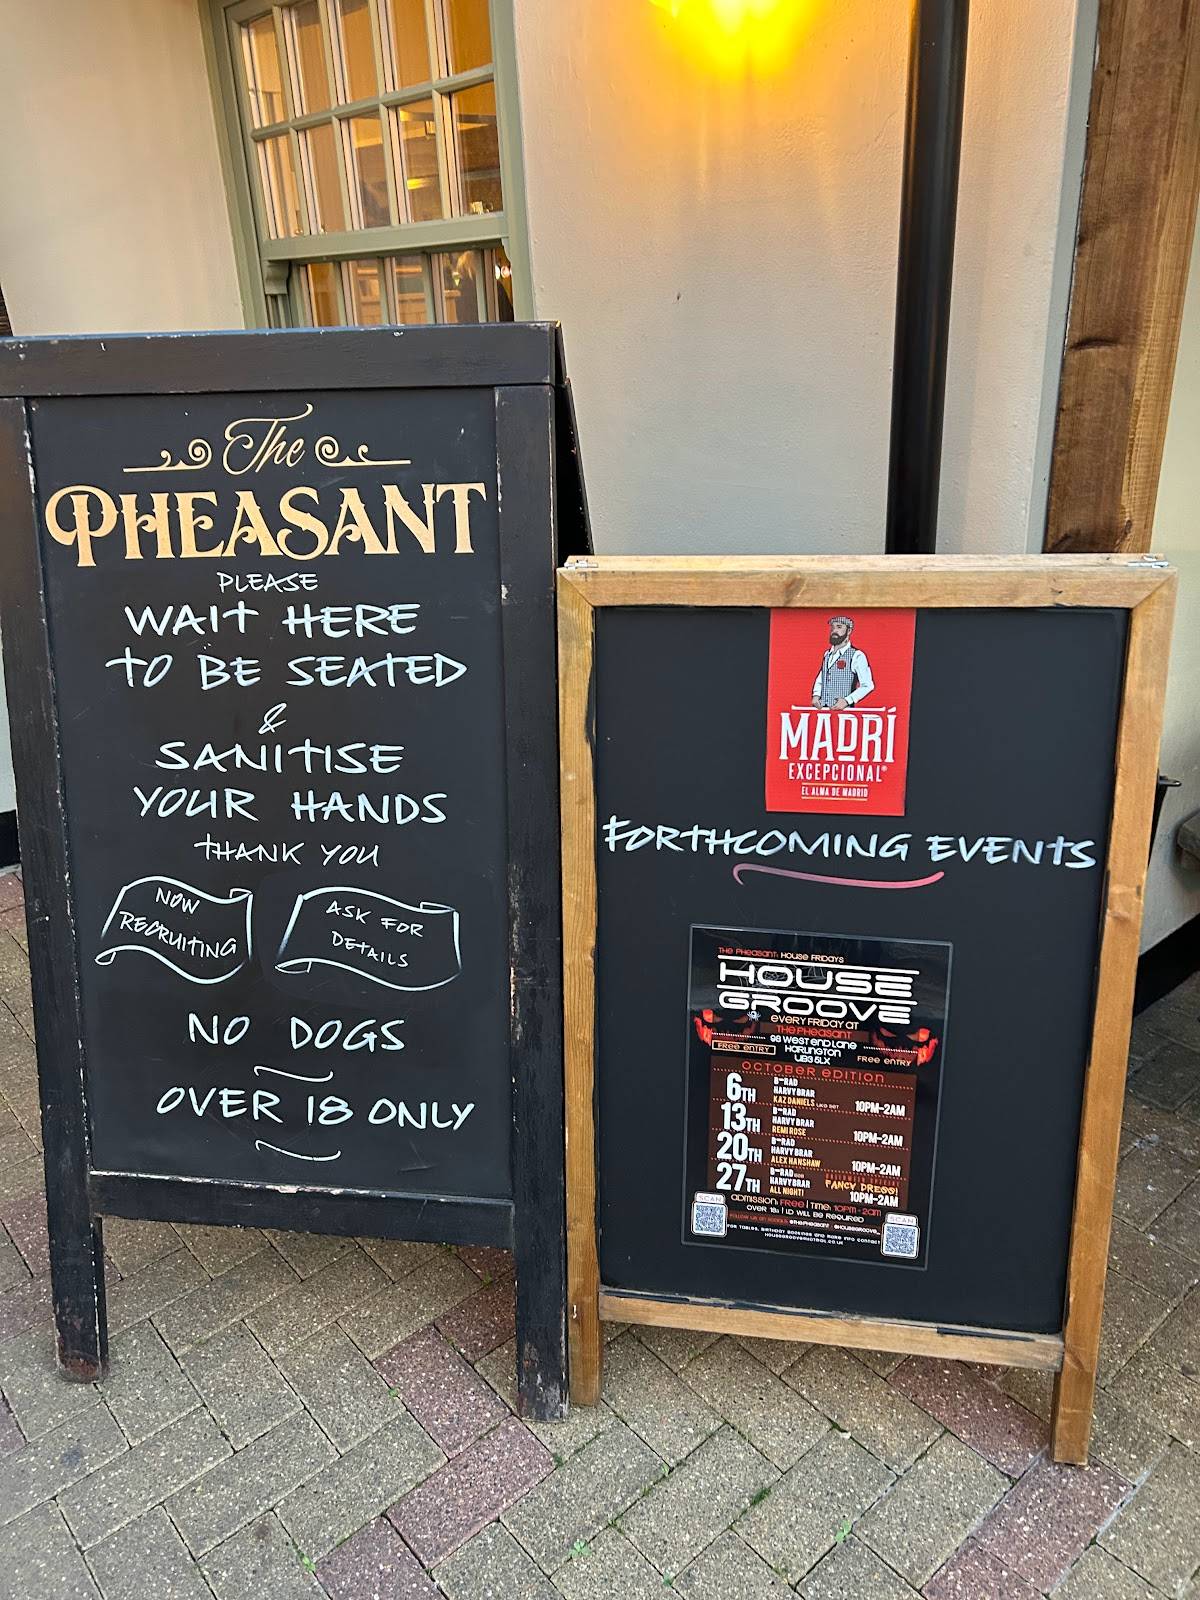 The
PHEASANT
PLEASE
WAIT HERE
TO BE SEATED
&
SANITISE
YOUR HANDS
THANK YOU
NOW
RECRUITING
ASK FOR
DETAILS
NO DOGS
OVER 18 ONLY
MADRÍ
EXCEPCIONAL®
EL ALMA DE MADRID
FORTHCOMING EVENTS
THE PHEASANT: HOUSE FRIDAYS
HOUSE
GROOVE
EVERY FRIDAY AT
THE PHEASANT
98 WEST END LANE
HARLINGTON
UB3 5LX
FREE ENTRY
FREE ENTRY
OCTOBER EDITION
6TH
B-RAD
HARVY BRAR
KAZ DANIELS
10PM-2AM
13TH
B-RAD
HARVY BRAR
REMI ROSE
10PM-2AM
20TH
B-RAD
HARVY BRAR
ALEX HANSHAW
10PM-2AM
27TH
B-RAD
HARVY BRAR
ALL NIGHT!
FANCY DRESS!
10PM-2AM
ADMISSION: FREE | TIME: 10PM - 2AM
OVER 18s | ID WILL BE REQUIRED
FOLLOW US ON SOCIALS @THEPHEASANT @HOUSEGROOVE_
FOR TABLES, BIRTHDAY BOOKINGS AND MORE INFO CONTACT
SCAN
SCAN